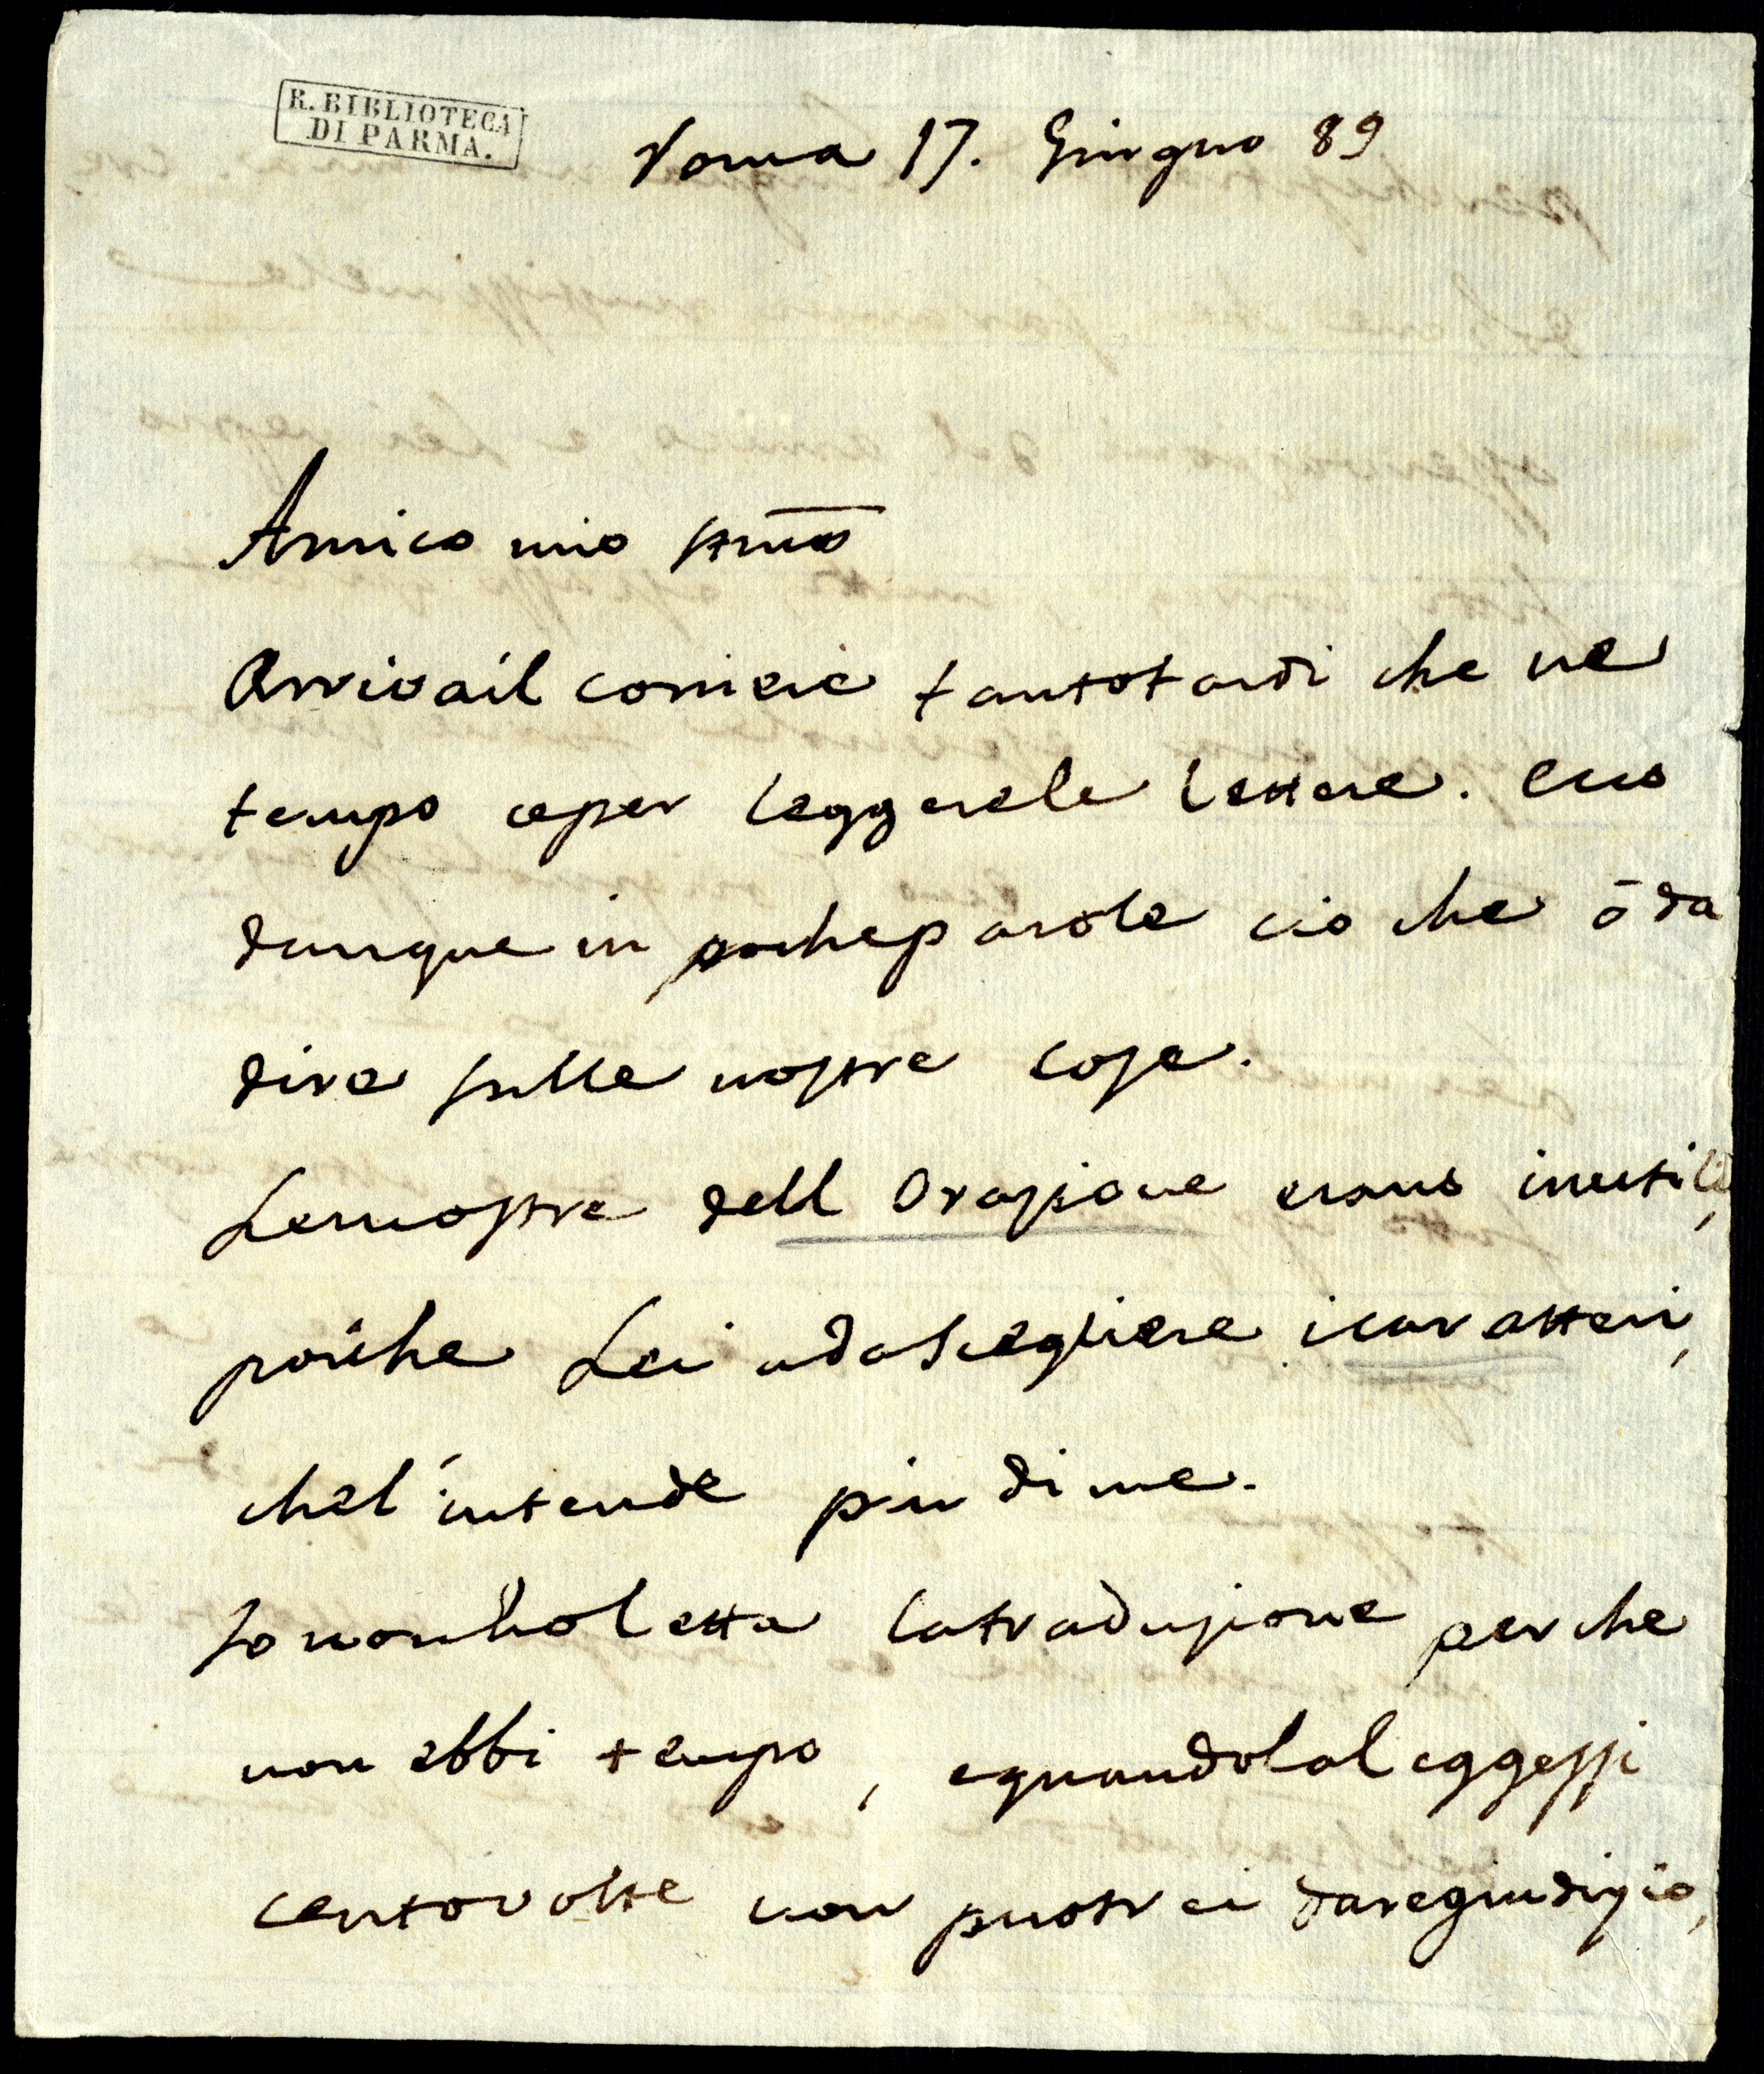 R. BIBLIOTECA
DI PARMA.
Roma 17. Giugno 89
Amico mio stmo
Arriva il corriere tanto tardi che ne
tempo ce per leggere le lettere. ecco
dunque in poche parole cio che ō da
dire sulle nostre cose.
Le mostre dell Orazione erano inutili,
poiche Lei a da Scegliere i caratteri,
che l'intende piu di me.
Io non ho letta la traduzione perche
non ebbi tempo, e quando la leggessi
cento volte non puotrei dare giudizio,